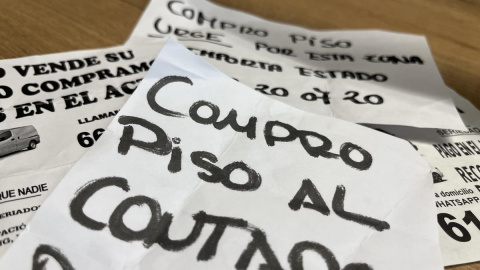 COMPRO PISO
URGE POR ESTA ZONA
ESTADO
20 07 20
VENDE SU
O COMPRAMO
S EN EL AC
LLAMA
66
QUE NADIE
COMPRO
PISO AL
CONTADO
PAGO EN EL
RECO
a domicilio
WHATSAPP
61